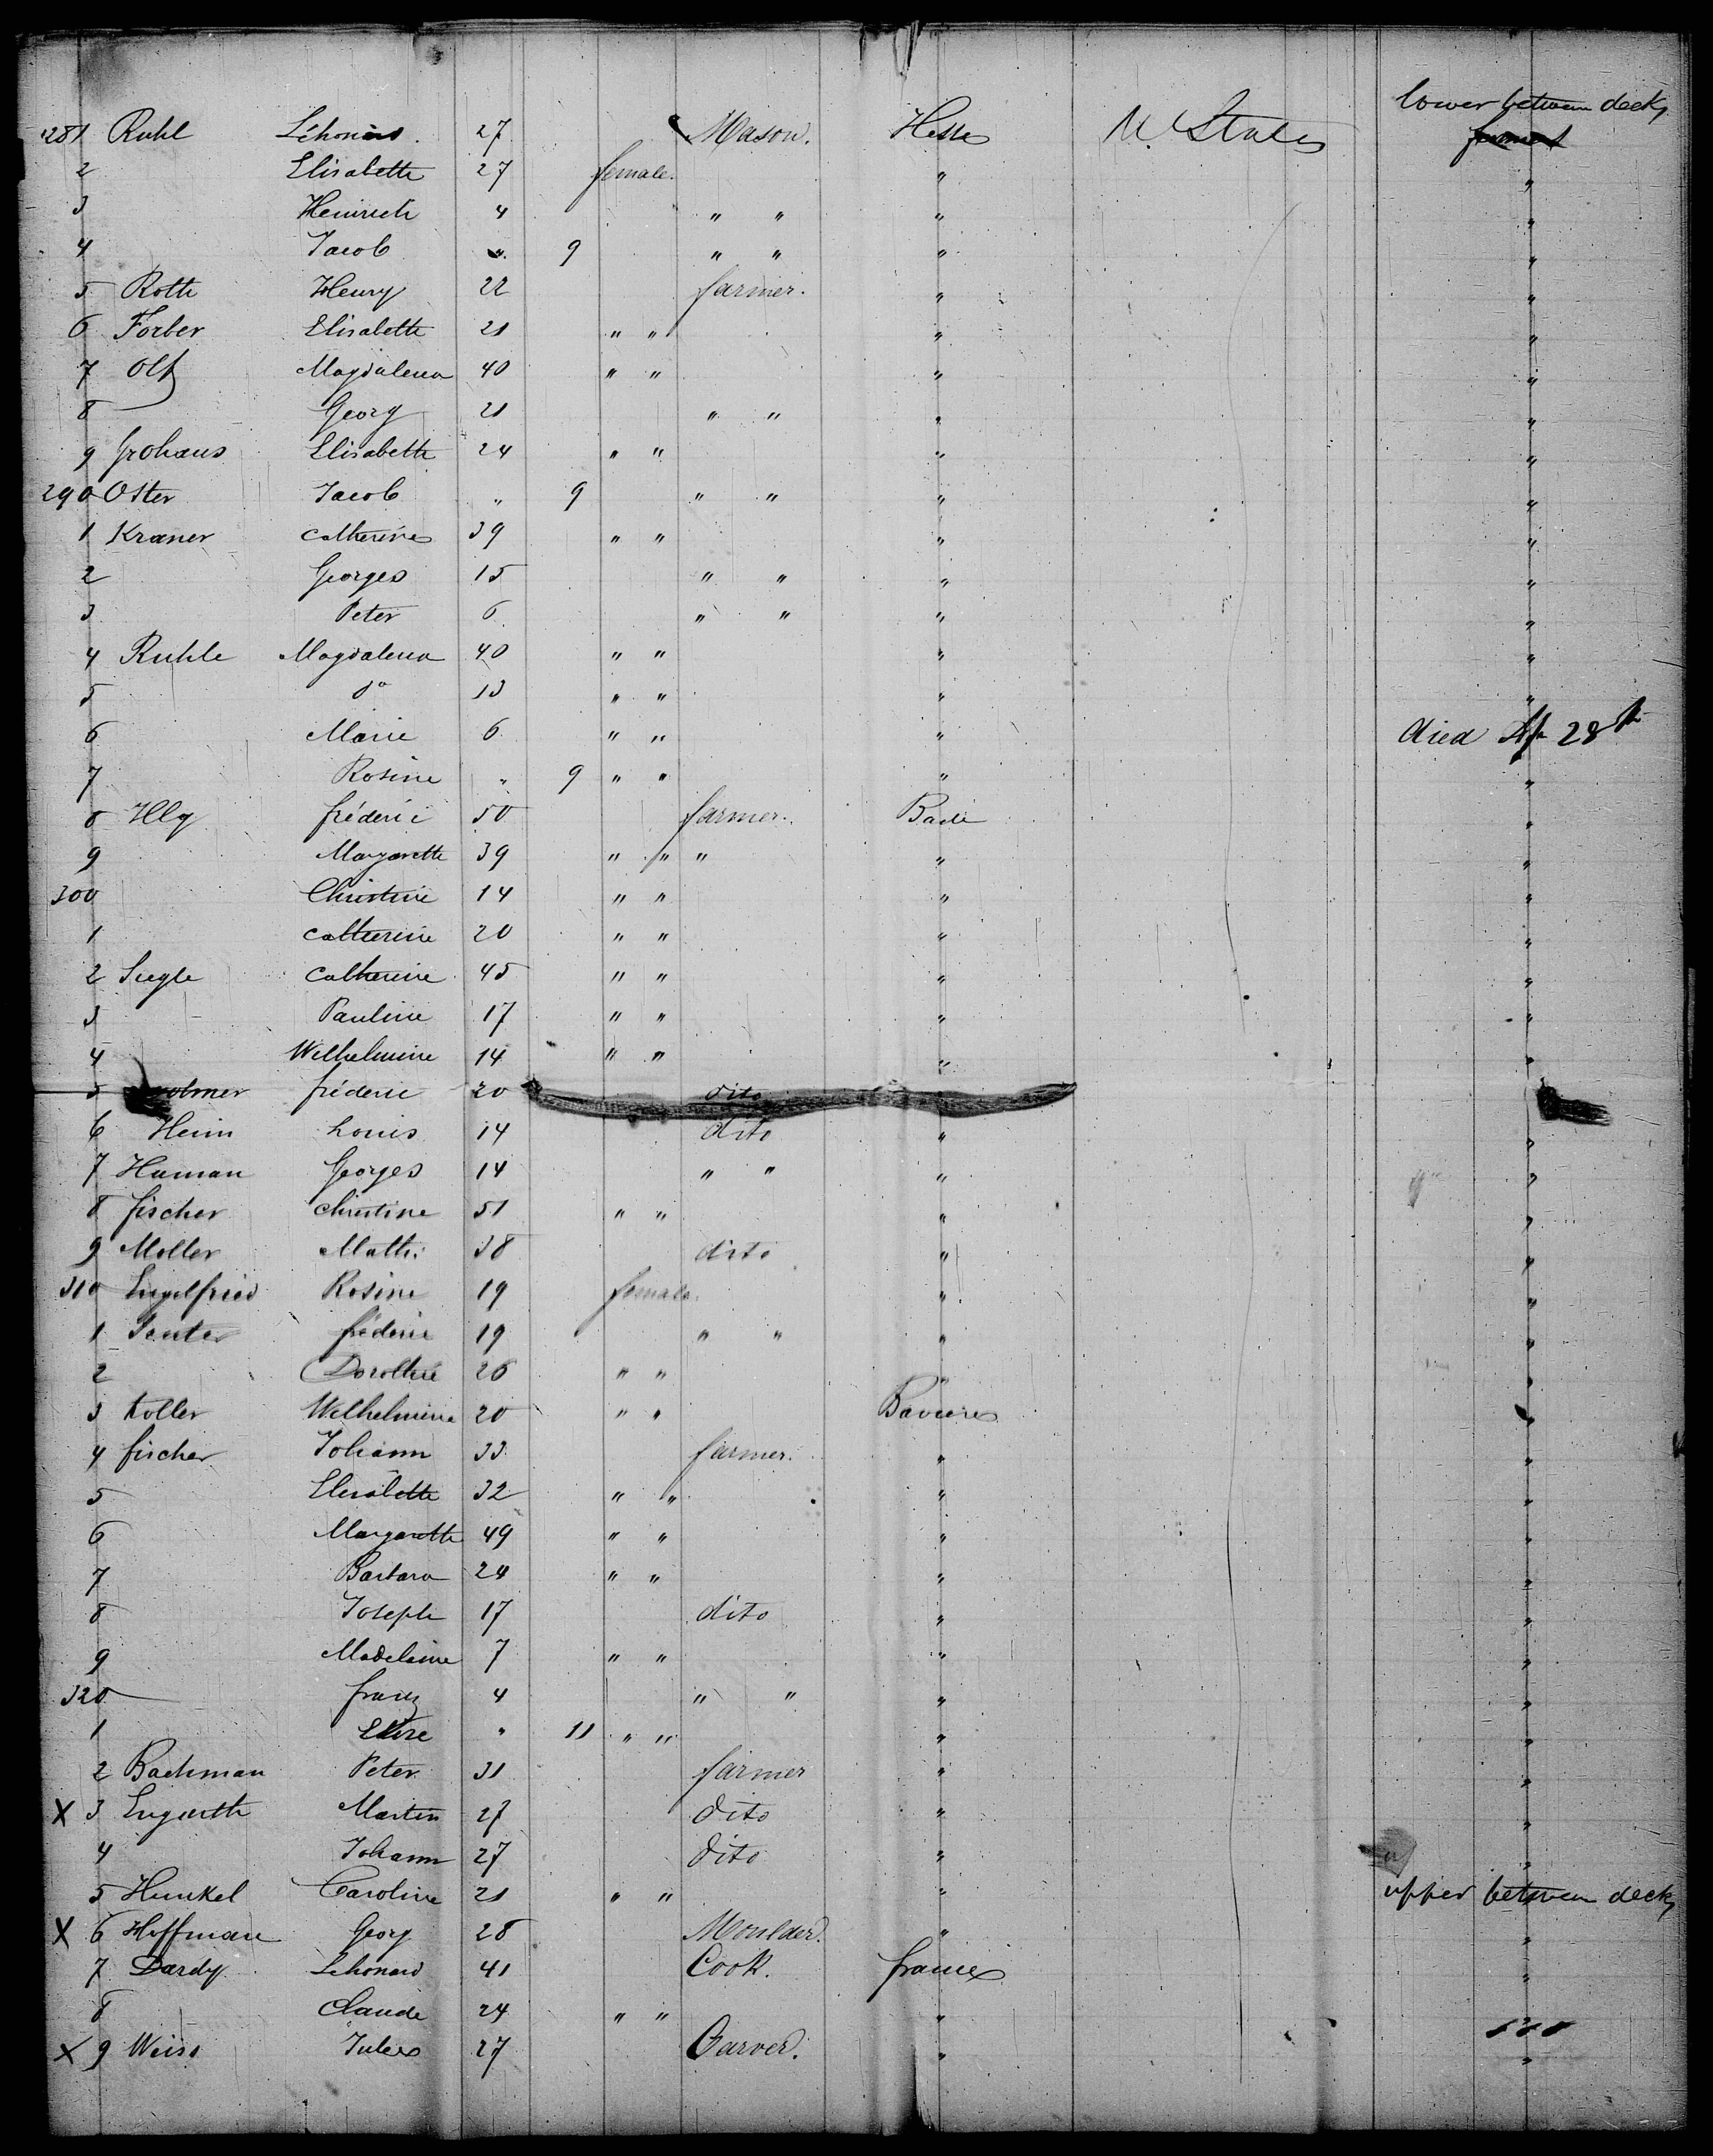 lower between deck
281 Ruhl Léhonard 27 Mason. Hesse U. States
2 Elisabeth 27 female. " "
3 Heinrich 4 " " " "
4 Jacob " 9 " " " "
5 Roth Henry 22 farmer. " "
6 Forber Elisabeth 21 " " " "
7 Olt Magdalena 40 " " " "
8 Georg 21 " " " "
9 Grohaus Elisabeth 24 " " " "
290 Oster Jacob " 9 " " " "
1 Kraner Catherine 39 " " " "
2 Georges 15 " " " "
3 Peter 6 " " " "
4 Ruhle Magdalena 40 " " " "
5 do 13 " " " "
6 Marie 6 " " " died Ap 28th
7 Rosine " 9 " " " "
8 Illg fréderic 50 farmer. Bade "
9 Margareth 39 " " " " "
300 Christine 14 " " " "
1 Catherine 20 " " " "
2 Siegle Catherine 45 " " " "
3 Pauline 17 " " " "
4 Wilhelmine 14 " " " "
5 fréderic 20 dito
6 Heim Louis 14 dito " "
7 Human Georges 14 " " " "
8 fischer Christine 51 " " " "
9 Moller Math: 38 dito " "
310 Engelfried Rosine 19 female. " "
1 Senter fréderic 19 " " " "
2 Dorothée 26 " " " "
3 Koller Wilhelmine 20 " " Baviere "
4 fischer Johann 33 farmer. " "
5 Elisabeth 32 " " " "
6 Margareth 49 " " " "
7 Barbara 24 " " " "
8 Joseph 17 dito " "
9 Madelaine 7 " " " "
320 franz 4 " " " "
1 Elise " 11 " " " "
2 Bachman Peter 31 farmer " "
X 3 Engerth Martin 27 dito " "
4 Johann 27 dito " "
5 Hunkel Caroline 21 " " " upper between deck
X 6 Hoffman Georg 28 Moulder. " "
7 Dardy Léhonard 41 Cook. france "
8 Claude 24 " " "
X 9 Weiss Jules 27 Carver. " "